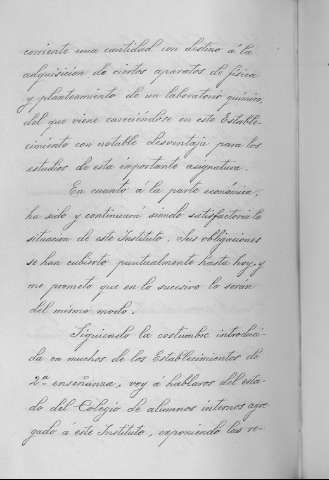 corriente una cantidad con destino á la
adquisición de ciertos aparatos de física
y planteamiento de un laboratorio químico,
del que viene careciéndose en este Estable-
cimiento con notable desventaja para los
estudios de esta importante asignatura.
En cuanto á la parte económica,
ha sido y continuará siendo satisfactoria la
situación de este Instituto. Sus obligaciones
se han cubierto puntualmente hasta hoy, y
me prometo que en lo sucesivo lo serán
del mismo modo.
Siguiendo la costumbre introduci-
da en muchos de los Establecimientos de
2ª enseñanza, voy á hablaros del esta-
do del Colegio de alumnos internos agre
gado á este Instituto, exponiendo las re-